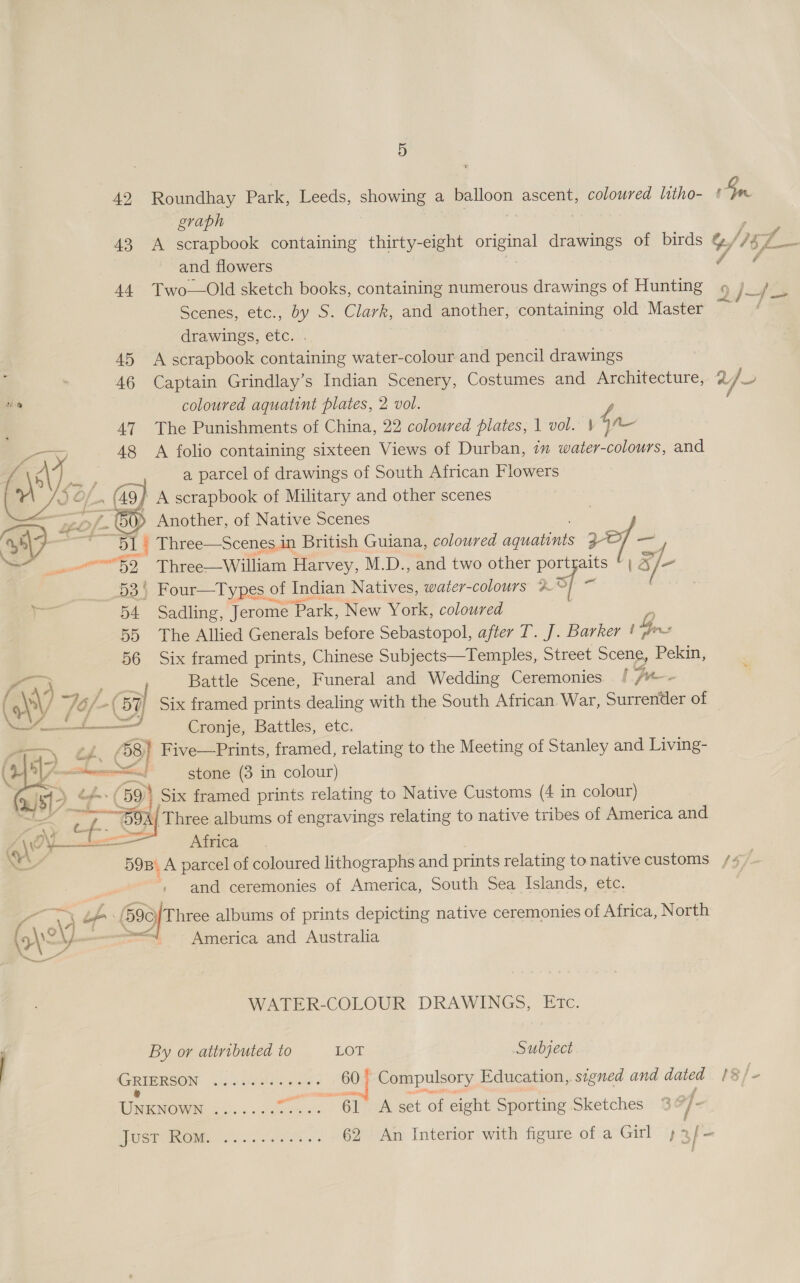 5
42 Roundhay Park, Leeds, showing a balloon ascent, coloured litho-
graph
43 A scrapbook containing thirty-eight original drawings of birds
and flowers
44 Two—Old sketch books, containing numerous drawings of Hunting
Scenes, etc., by S. Clark, and another, containing old Master
drawings, etc.
45 A scrapbook containing water-colour and pencil drawings
46 Captain Grindlay's Indian Scenery, Costumes and Architecture, 2/-
coloured aquatint plates, 2 vol.
47 The Punishments of China, 22 coloured plates, 1 vol.
48 A folio containing sixteen Views of Durban, in water-colours, and
a parcel of drawings of South African Flowers
49 A scrapbook of Military and other scenes
50 Another, of Native Scenes
51 Three—Scenes in British Guiana, coloured aquatints
52 Three—William Harvey, M.D., and two other portraits
53 Four—Types of Indian Natives, water-colours
54 Sadling, Jerome Park, New York, coloured
55 The Allied Generals before Sebastopol, after T. J. Barker
56 Six framed prints, Chinese Subjects—Temples, Street Scene, Pekin,
Battle Scene, Funeral and Wedding Ceremonies
57 Six framed prints dealing with the South African War, Surrender of
Cronje, Battles, etc.
58 Five—Prints, framed, relating to the Meeting of Stanley and Living-
stone (3 in colour)
59 Six framed prints relating to Native Customs (4 in colour)
59A Three albums of engravings relating to native tribes of America and
Africa
59B A parcel of coloured lithographs and prints relating to native customs
and ceremonies of America, South Sea Islands, etc.
59C Three albums of prints depicting native ceremonies of Africa, North
America and Australia
WATER-COLOUR DRAWINGS, ETC.
By or attributed to LOT Subject
GRIERSON ............ 60 Compulsory Education, signed and dated 18/-
UNKNOWN ............ 61 A set of eight Sporting Sketches
JUST ROM. ............ 62 An Interior with figure of a Girl